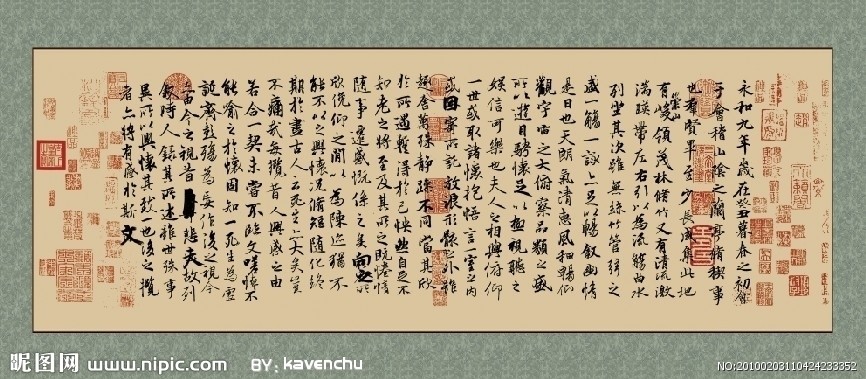 永和九年歲在癸丑暮春之初會
于會稽山陰之蘭亭脩稧事
也群賢畢至少長咸集此地
有崇山峻領茂林脩竹又有清流激
湍暎帶左右引以為流觴曲水
列坐其次雖無絲竹管弦之
盛一觴一詠亦足以暢敘幽情
是日也天朗氣清惠風和暢仰
觀宇宙之大俯察品類之盛
所以遊目騁懷足以極視聽之
娛信可樂也夫人之相與俯仰
一世或取諸懷抱悟言一室之內
或因寄所託放浪形骸之外雖
趣舍萬殊靜躁不同當其欣
於所遇蹔得於己怏然自足不
知老之將至及其所之既惓情
隨事遷感慨係之矣向之所
欣俛仰之閒以為陳迹猶不
能不以之興懷況脩短隨化終
期於盡古人云死生亦大矣豈
不痛哉每攬昔人興感之由
若合一契未嘗不臨文嗟悼不
能喻之於懷固知一死生為虛
誕齊彭殤為妄作後之視今
亦由今之視昔悲夫故列
敘時人錄其所述雖世殊事
異所以興懷其致一也後之攬
者亦將有感於斯文
昵图网 www.nipic.com BY: kavenchu
NO:20100203110424233352